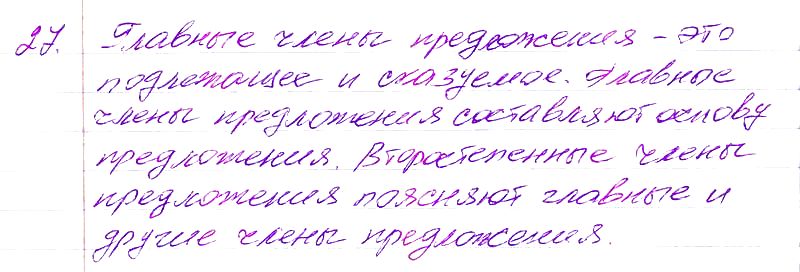 27. Главные члены предложения – это
подлежащее и сказуемое. Главные
члены предложения составляют основу
предложения. Второстепенные члены
предложения поясняют главные и
другие члены предложения.